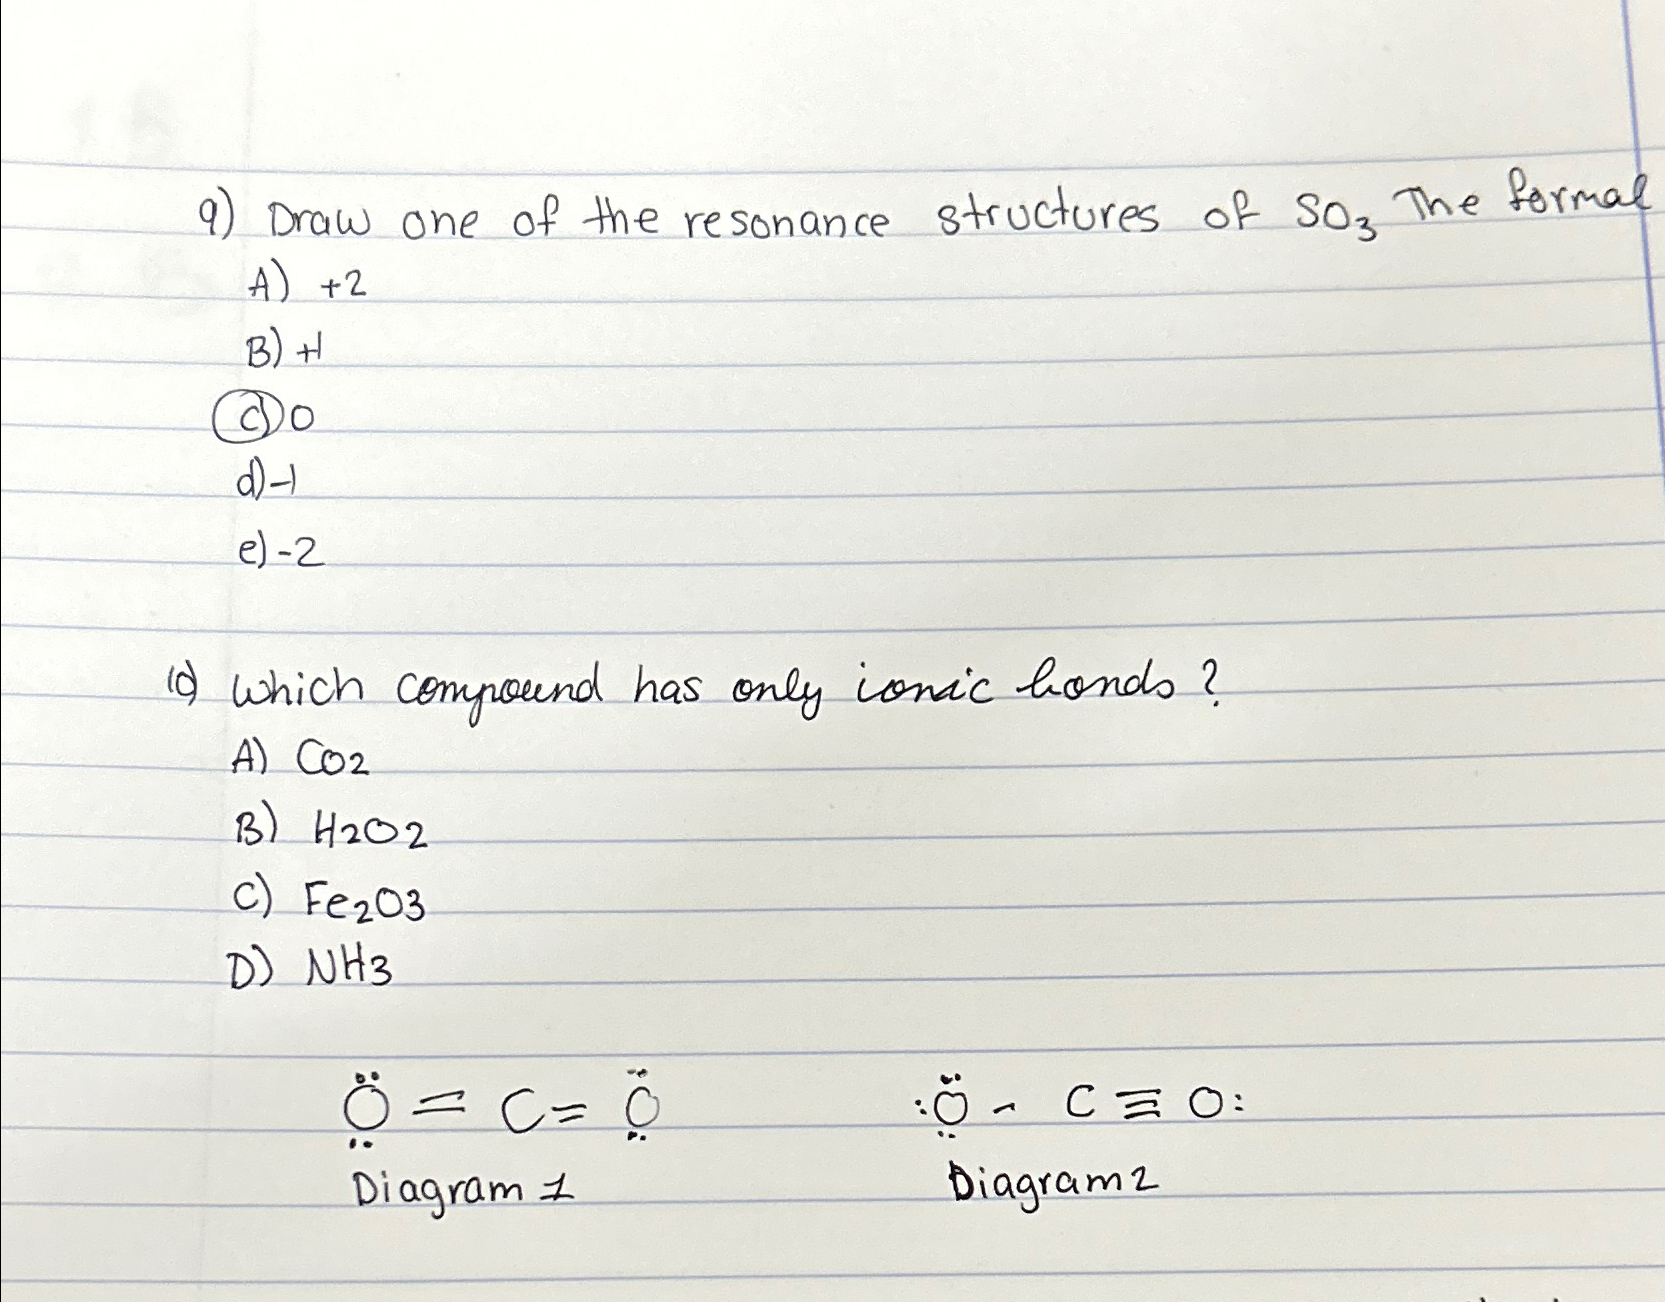 9) Draw one of the resonance structures of SO3 The formal
A) +2
B) +1
C) 0
d) -1
e) -2
10) Which compound has only ionic bonds?
A) CO2
B) H2O2
C) Fe2O3
D) NH3
Ö = C = Ö :Ö - C ≡ O:
Diagram 1 Diagram 2